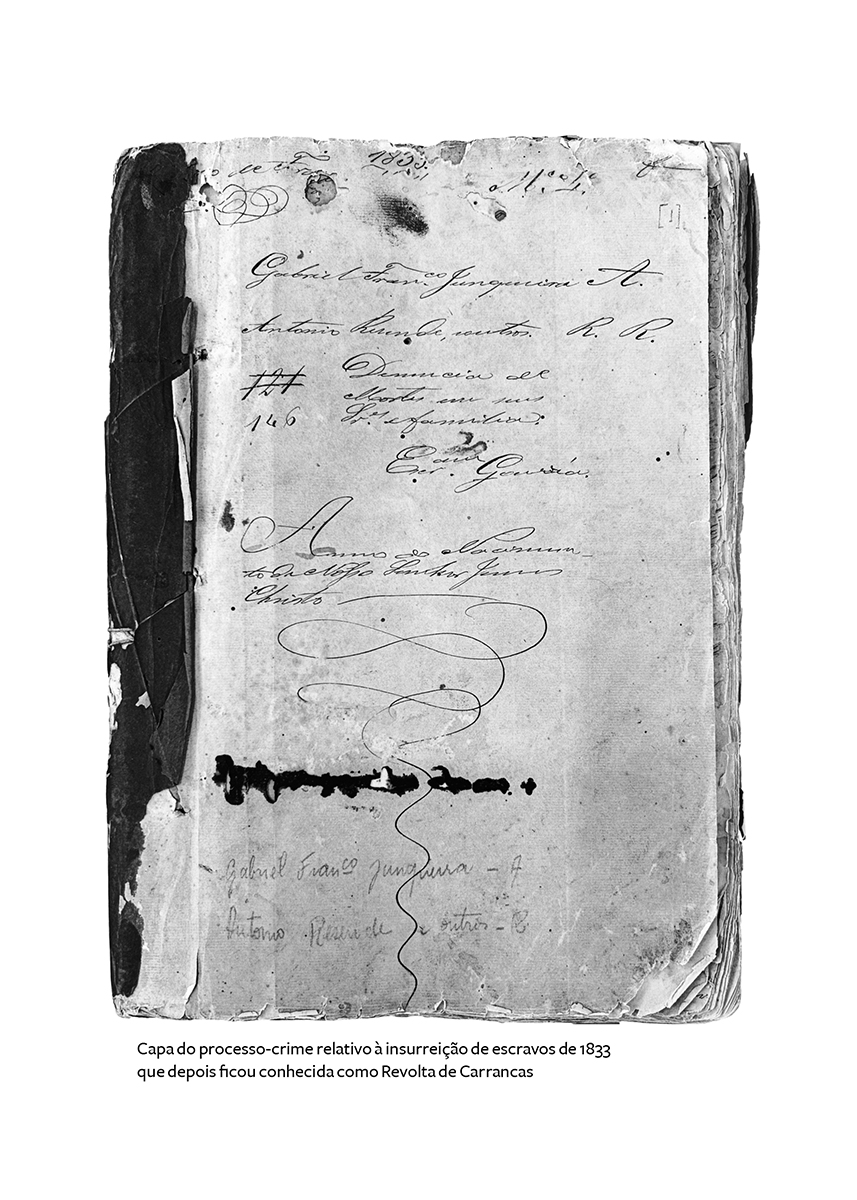 1833
[1]
Gabriel Fran.co Junqueira A.
Antonio Resende, e outros. R. R.
121
146
Denuncia de
Mortes em seus
Snr.es e familia.
Escr.
Anno do Nascimen-
to de Nosso Senhor Jesus
Christo
Gabriel Franco Junqueira - A
Antonio Resende e outros - R
Capa do processo-crime relativo à insurreição de escravos de 1833
que depois ficou conhecida como Revolta de Carrancas